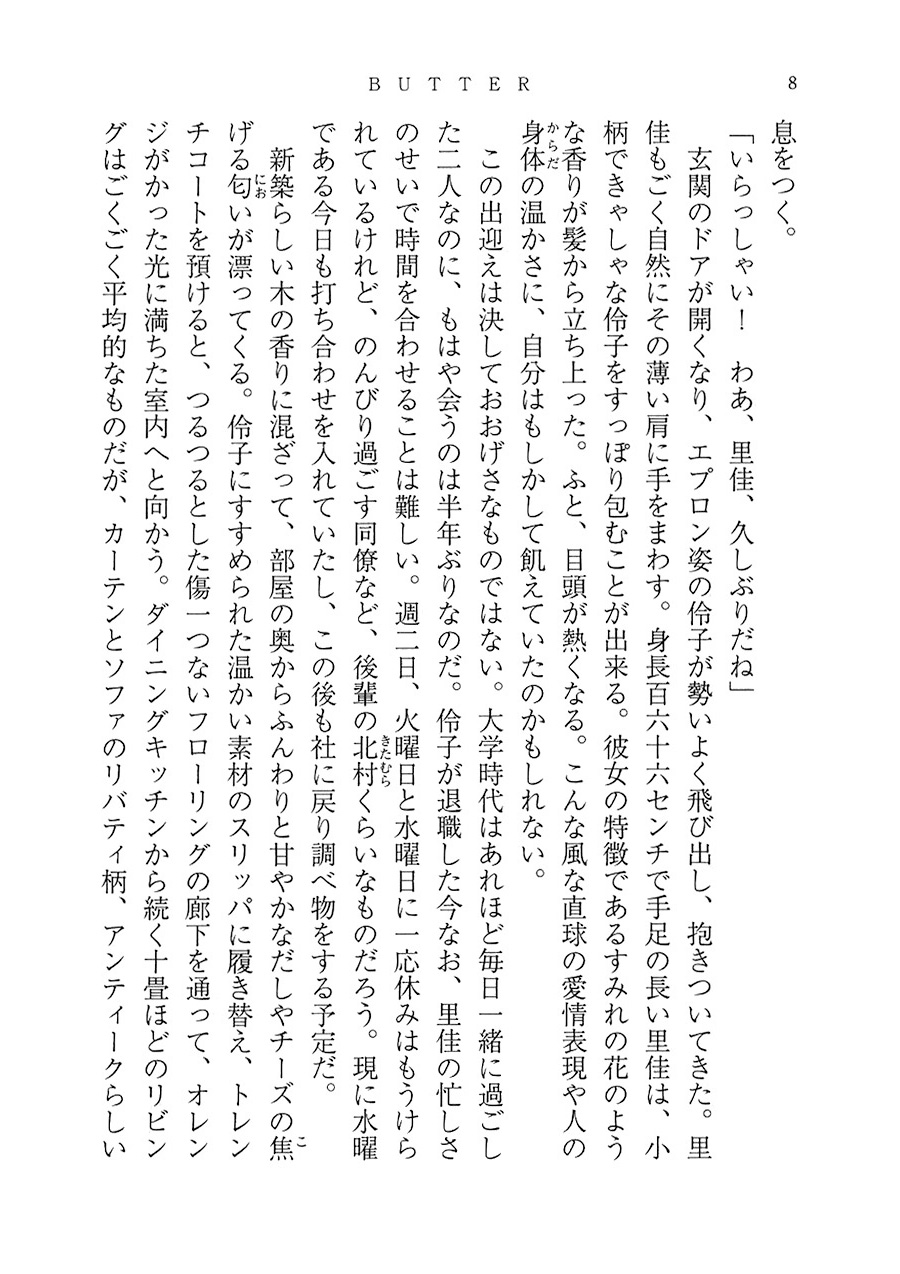 BUTTER
8
息をつく。
「いらっしゃい！　わあ、里佳、久しぶりだね」
　玄関のドアが開くなり、エプロン姿の伶子が勢いよく飛び出し、抱きついてきた。里
佳もごく自然にその薄い肩に手をまわす。身長百六十六センチで手足の長い里佳は、小
柄できゃしゃな伶子をすっぽり包むことが出来る。彼女の特徴であるすみれの花のよう
な香りが髪から立ち上った。ふと、目頭が熱くなる。こんな風な直球の愛情表現や人の
身体からだの温かさに、自分はもしかして飢えていたのかもしれない。
　この出迎えは決しておおげさなものではない。大学時代はあれほど毎日一緒に過ごし
た二人なのに、もはや会うのは半年ぶりなのだ。伶子が退職した今なお、里佳の忙しさ
のせいで時間を合わせることは難しい。週二日、火曜日と水曜日に一応休みはもうけら
れているけれど、のんびり過ごす同僚など、後輩の北村きたむらくらいなものだろう。現に水曜
である今日も打ち合わせを入れていたし、この後も社に戻り調べ物をする予定だ。
　新築らしい木の香りに混ざって、部屋の奥からふんわりと甘やかなだしやチーズの焦こ
げる匂においが漂ってくる。伶子にすすめられた温かい素材のスリッパに履き替え、トレン
チコートを預けると、つるつるとした傷一つないフローリングの廊下を通って、オレン
ジがかった光に満ちた室内へと向かう。ダイニングキッチンから続く十畳ほどのリビン
グはごくごく平均的なものだが、カーテンとソファのリバティ柄、アンティークらしい